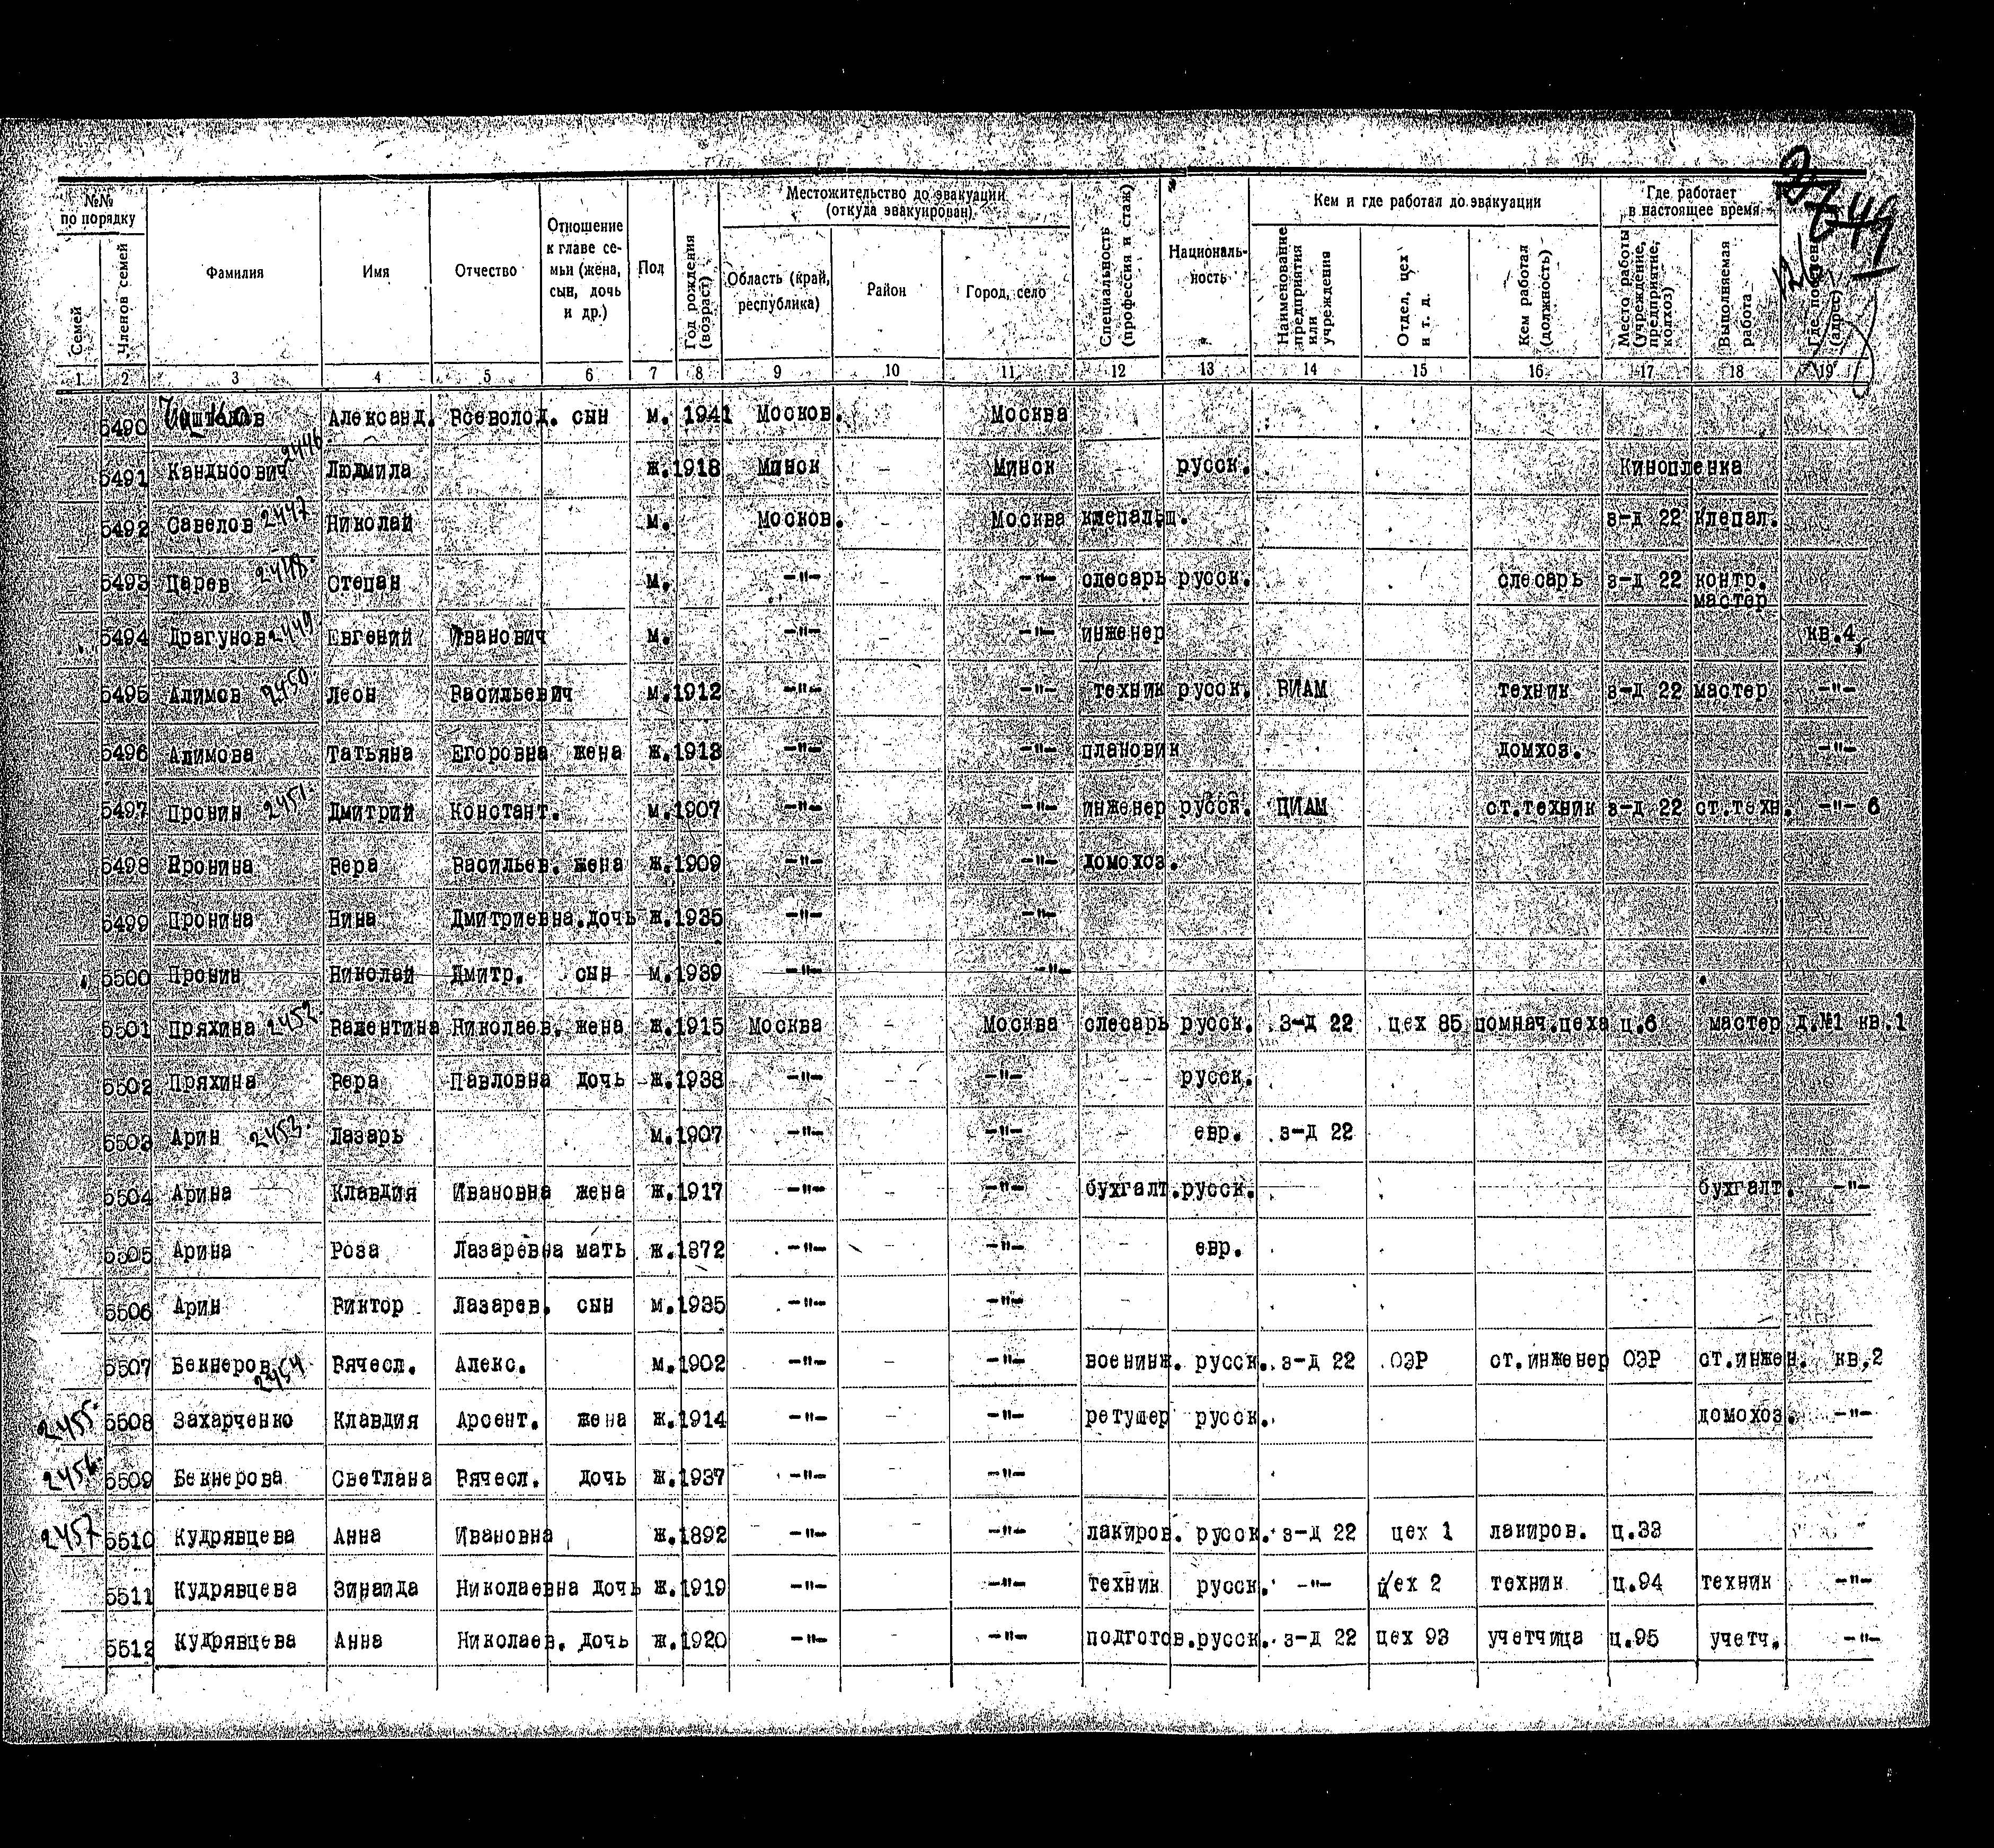 №№ по порядку
Семей
Членов семей
Фамилия
Имя
Отчество
Отношение к главе семьи (жена, сын, дочь и др.)
Пол
Год рождения (возраст)
Местожительство до эвакуации (откуда эвакуирован)
Область (край, республика)
Район
Город, село
Специальность (профессия и стаж)
Националь-ность
Кем и где работал до эвакуации
Наименование предприятия или учреждения
Отдел, цех и т. д.
Кем работал (должность)
Где работает в настоящее время
Место работы (учреждение, предприятие, колхоз)
Выполняемая работа
(адрес)
1 2 3 4 5 6 7 8 9 10 11 12 13 14 15 16 17 18 19
5490 Александ. Всеволод. сын м. 1941 Москов. Москва
5491 Кандыбович 2446 Людмила ж. 1918 Минск - Минск русск. Кинопленка
5492 Савелов 2447 Николай м. Москов. - Москва клепальщ. з-д 22 клепал.
5493 Царев 2448. Степан м. -"- - -"- слесарь русск. слесарь з-д 22 контр. мастер
5494 Драгунов 2449 Евгений Иванович м. -"- - -"- инженер кв.4
5495 Алимов 2450. Леон Васильевич м. 1912 -"- -"- техник русск. ВИАМ техник з-д 22 мастер -"-
5496 Алимова Татьяна Егоровна жена ж. 1913 -"- -"- плановик домхоз. -"-
5497 Пронин 2451. Дмитрий Констант. м. 1907 -"- -"- инженер русск. ЦИАМ ст.техник з-д 22 ст.техн. -"- 6
5498 Пронина Вера Васильев. жена ж. 1909 -"- -"- домохоз.
5499 Пронина Нина Дмитриевна. дочь ж. 1935 -"- -"-
5500 Пронин Николай Дмитр. сын м. 1939 -"- -"-
5501 Пряхина 2452 Валентина Николаев. жена ж. 1915 Москва - Москва слесарь русск. З-Д 22 цех 85 помнач.цеха ц.6 мастер д.№1 кв.1
5502 Пряхина Вера Павловна дочь ж. 1938 -"- - -"- - русск.
5503 Арин 2453. Лазарь м. 1907 -"- - -"- - евр. з-д 22
5504 Арина Клавдия Ивановна жена ж. 1917 -"- - -"- бухгалт. русск. бухгалт. -"-
5505 Арина Роза Лазаревна мать ж. 1872 -"- - -"- - евр.
5506 Арин Виктор Лазарев. сын м. 1935 -"- - -"- -
5507 Бекнеров 2454 Вячесл. Алекс. м. 1902 -"- - -"- военинж. русск. з-д 22 ОЭР ст.инженер ОЭР ст.инжен. кв.2
2455. 5508 Захарченко Клавдия Арсент. жена ж. 1914 -"- - -"- ретушер русск. домохоз. -"-
2456. 5509 Бекнерова Светлана Вячесл. дочь ж. 1937 -"- -"-
2457 5510 Кудрявцева Анна Ивановна ж. 1892 -"- - -"- лакиров. русск. з-д 22 цех 1 лакиров. ц.33
5511 Кудрявцева Зинаида Николаевна дочь ж. 1919 -"- -"- техник русск. -"- цех 2 техник ц.94 техник -"-
5512 Кудрявцева Анна Николаев. дочь ж. 1920 -"- -"- подготов. русск. з-д 22 цех 93 учетчица ц.95 учетч. -"-